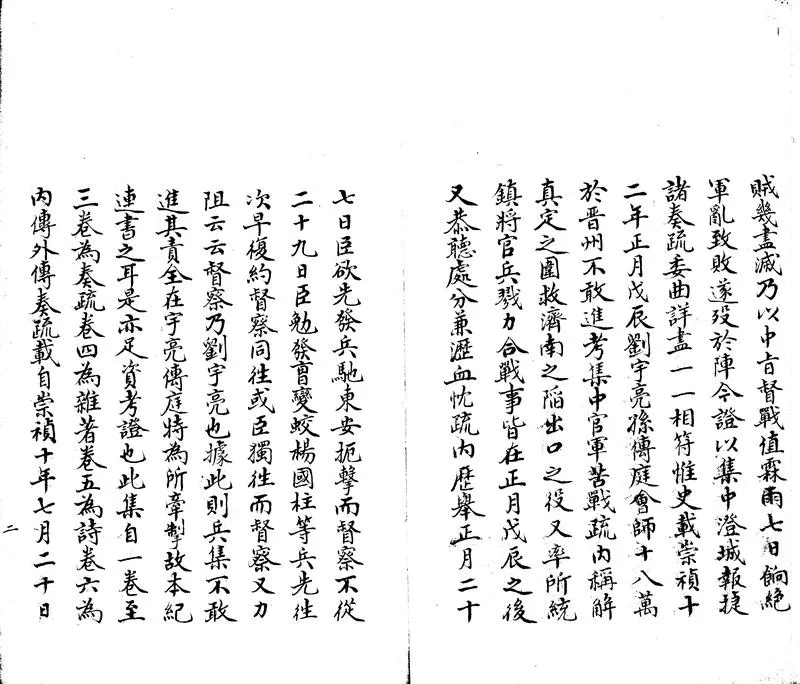 賊幾盡滅乃以中旨督戰值霖雨七日餉絕
軍亂致敗遂歿於陣今證以集中澄城報捷
諸奏疏委曲詳盡一一相符惟史載崇禎十
二年正月戊辰劉宇亮孫傳庭會師十八萬
於晋州不敢進考集中官軍苦戰疏内稱解
真定之圍救濟南之陷出口之役又率所統
鎮將官兵戮力合戰事皆在正月戊辰之後
又恭聽處分兼瀝血忱疏内歷舉正月二十
七日臣欲先發兵馳東安扼擊而督察不從
二十九日臣勉發曹變蛟楊國柱等兵先徃
次早復約督察同徃或臣獨徃而督察又力
阻云云督察乃劉宇亮也據此則兵集不敢
進其責全在宇亮傳庭特為所牽掣故本紀
連書之耳是亦足資考證也此集自一卷至
三卷為奏疏卷四為雜著卷五為詩卷六為
内傳外傳奏疏載自崇禎十年七月二十日
二